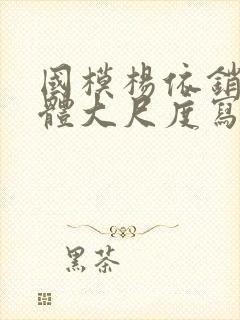 國模楊依銷
體大尺度寫
黑茶